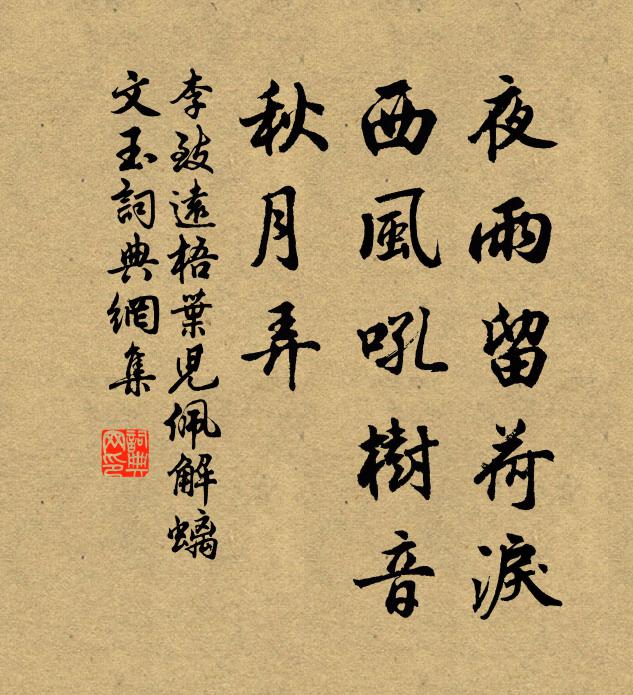 夜雨留荷淚
西風吼樹音
秋月弄
李致遠梧葉兒佩解螭
文玉詞典網集
詞典網印